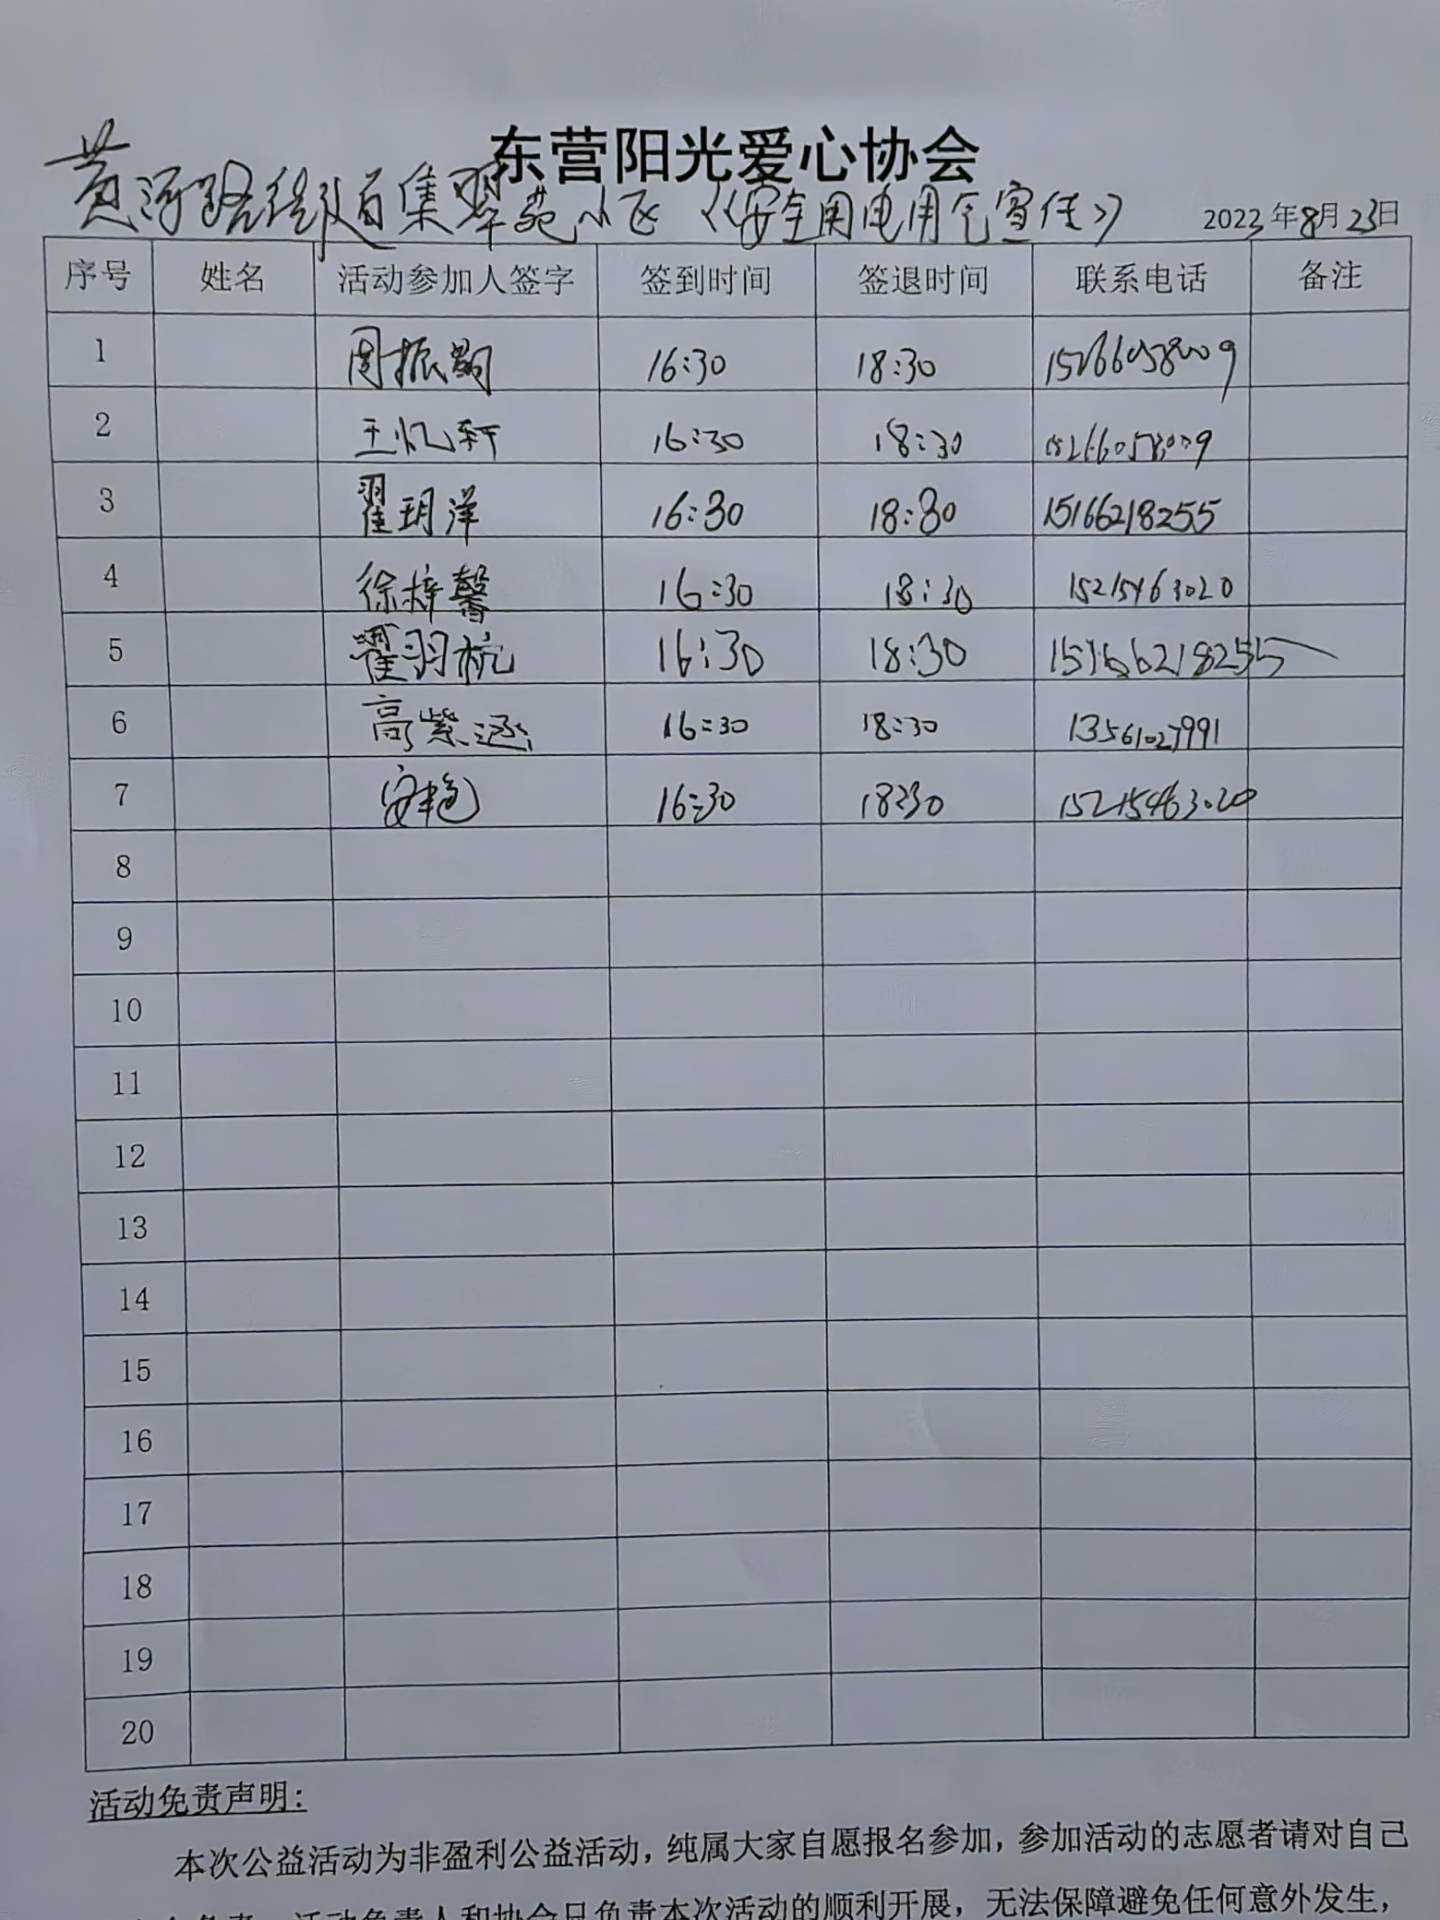 东营阳光爱心协会
黄河路街道集翠苑小区《安全用电用气宣传》 2023年8月23日
序号 姓名 活动参加人签字 签到时间 签退时间 联系电话 备注
1 周振 16:30 18:30 15266058009
2 王忆轩 16:30 18:30 15266058009
3 翟玥洋 16:30 18:30 15166218255
4 徐梓馨 16:30 18:30 15215463020
5 翟羽杭 16:30 18:30 15166218255
6 高紫涵 16:30 18:30 13561027991
7 安艳 16:30 18:30 15215463020
8
9
10
11
12
13
14
15
16
17
18
19
20
活动免责声明:
本次公益活动为非盈利公益活动，纯属大家自愿报名参加，参加活动的志愿者请对自己
活动负责人和协会只负责本次活动的顺利开展，无法保障避免任何意外发生，